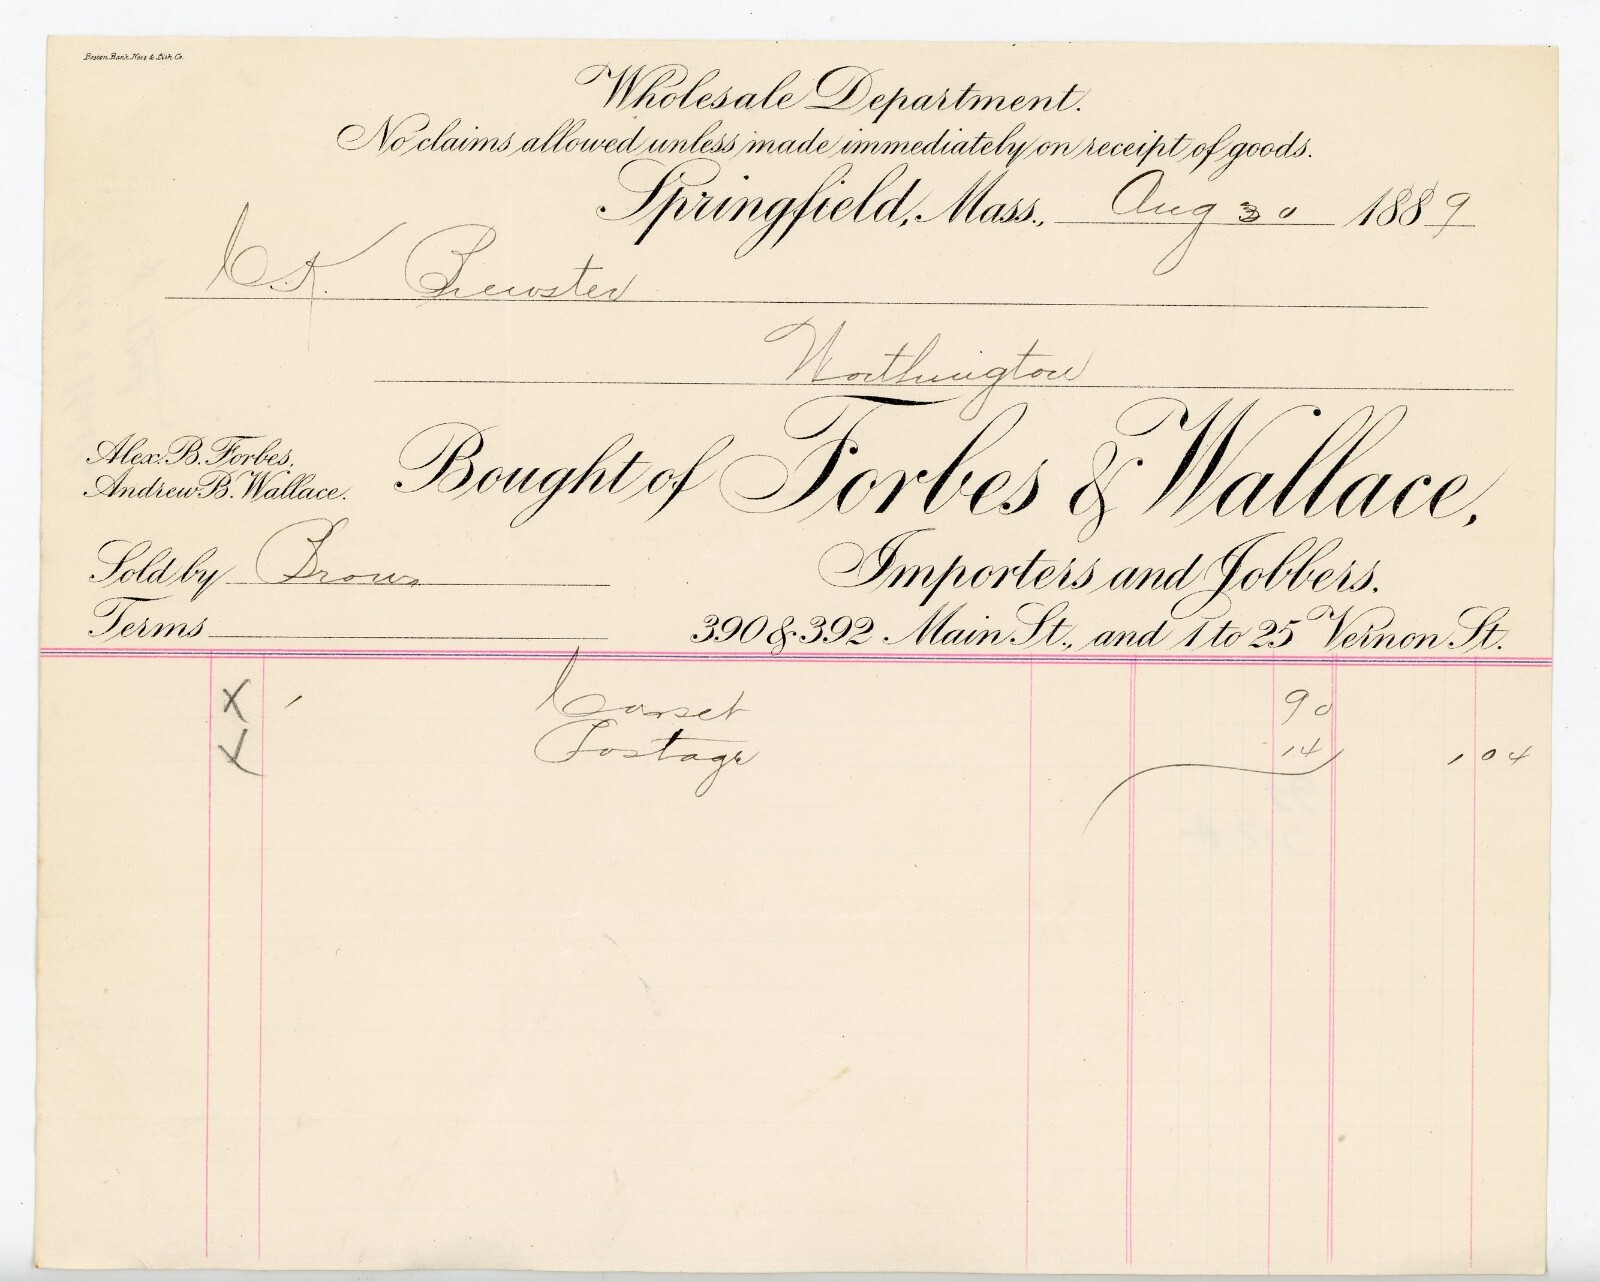 Boston Bank Note & Lith. Co.
Wholesale Department.
No claims allowed unless made immediately on receipt of goods.
Springfield, Mass., Aug 30 1889
C. K. Brewster
Worthington
Alex. B. Forbes.
Andrew B. Wallace.
Bought of Forbes & Wallace,
Importers and Jobbers.
Sold by Brown
Terms
390 & 392 Main St., and 1 to 25 Vernon St.
X 1 Corset 90
X Postage 14 1 04